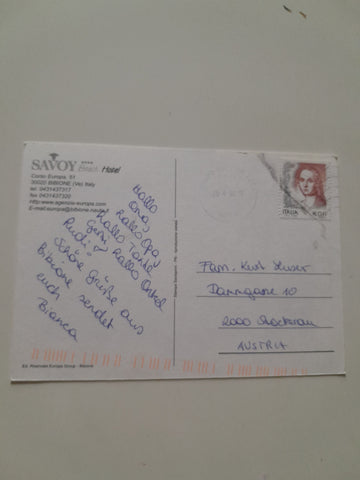 SAVOY
Beach Hotel
Corso Europa, 51
30020 BIBIONE (Ve) Italy
tel. 0431437317
fax 0431437320
http://www.agenzia-europa.com
E-mail:europa@bibione.nauta.it
Hallo
Oma,
hallo Opa,
Hallo Tante
Gerti, hallo Onkel
Rudi!
Schöne Grüße aus
Bibione sendet
euch
Bianca
ITALIA
Fam. Kurt
Danngasse 10
2000 Stockerau
AUSTRIA